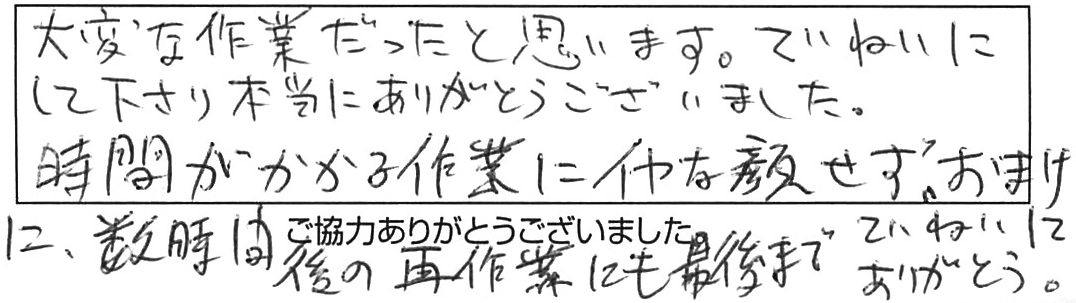 大変な作業だったと思います。ていねいに
して下さり本当にありがとうございました。
時間がかかる作業にイヤな顔せず、おまけ
に、数時間後の再作業にも最後までていねいに
ありがとう。
ご協力ありがとうございました。